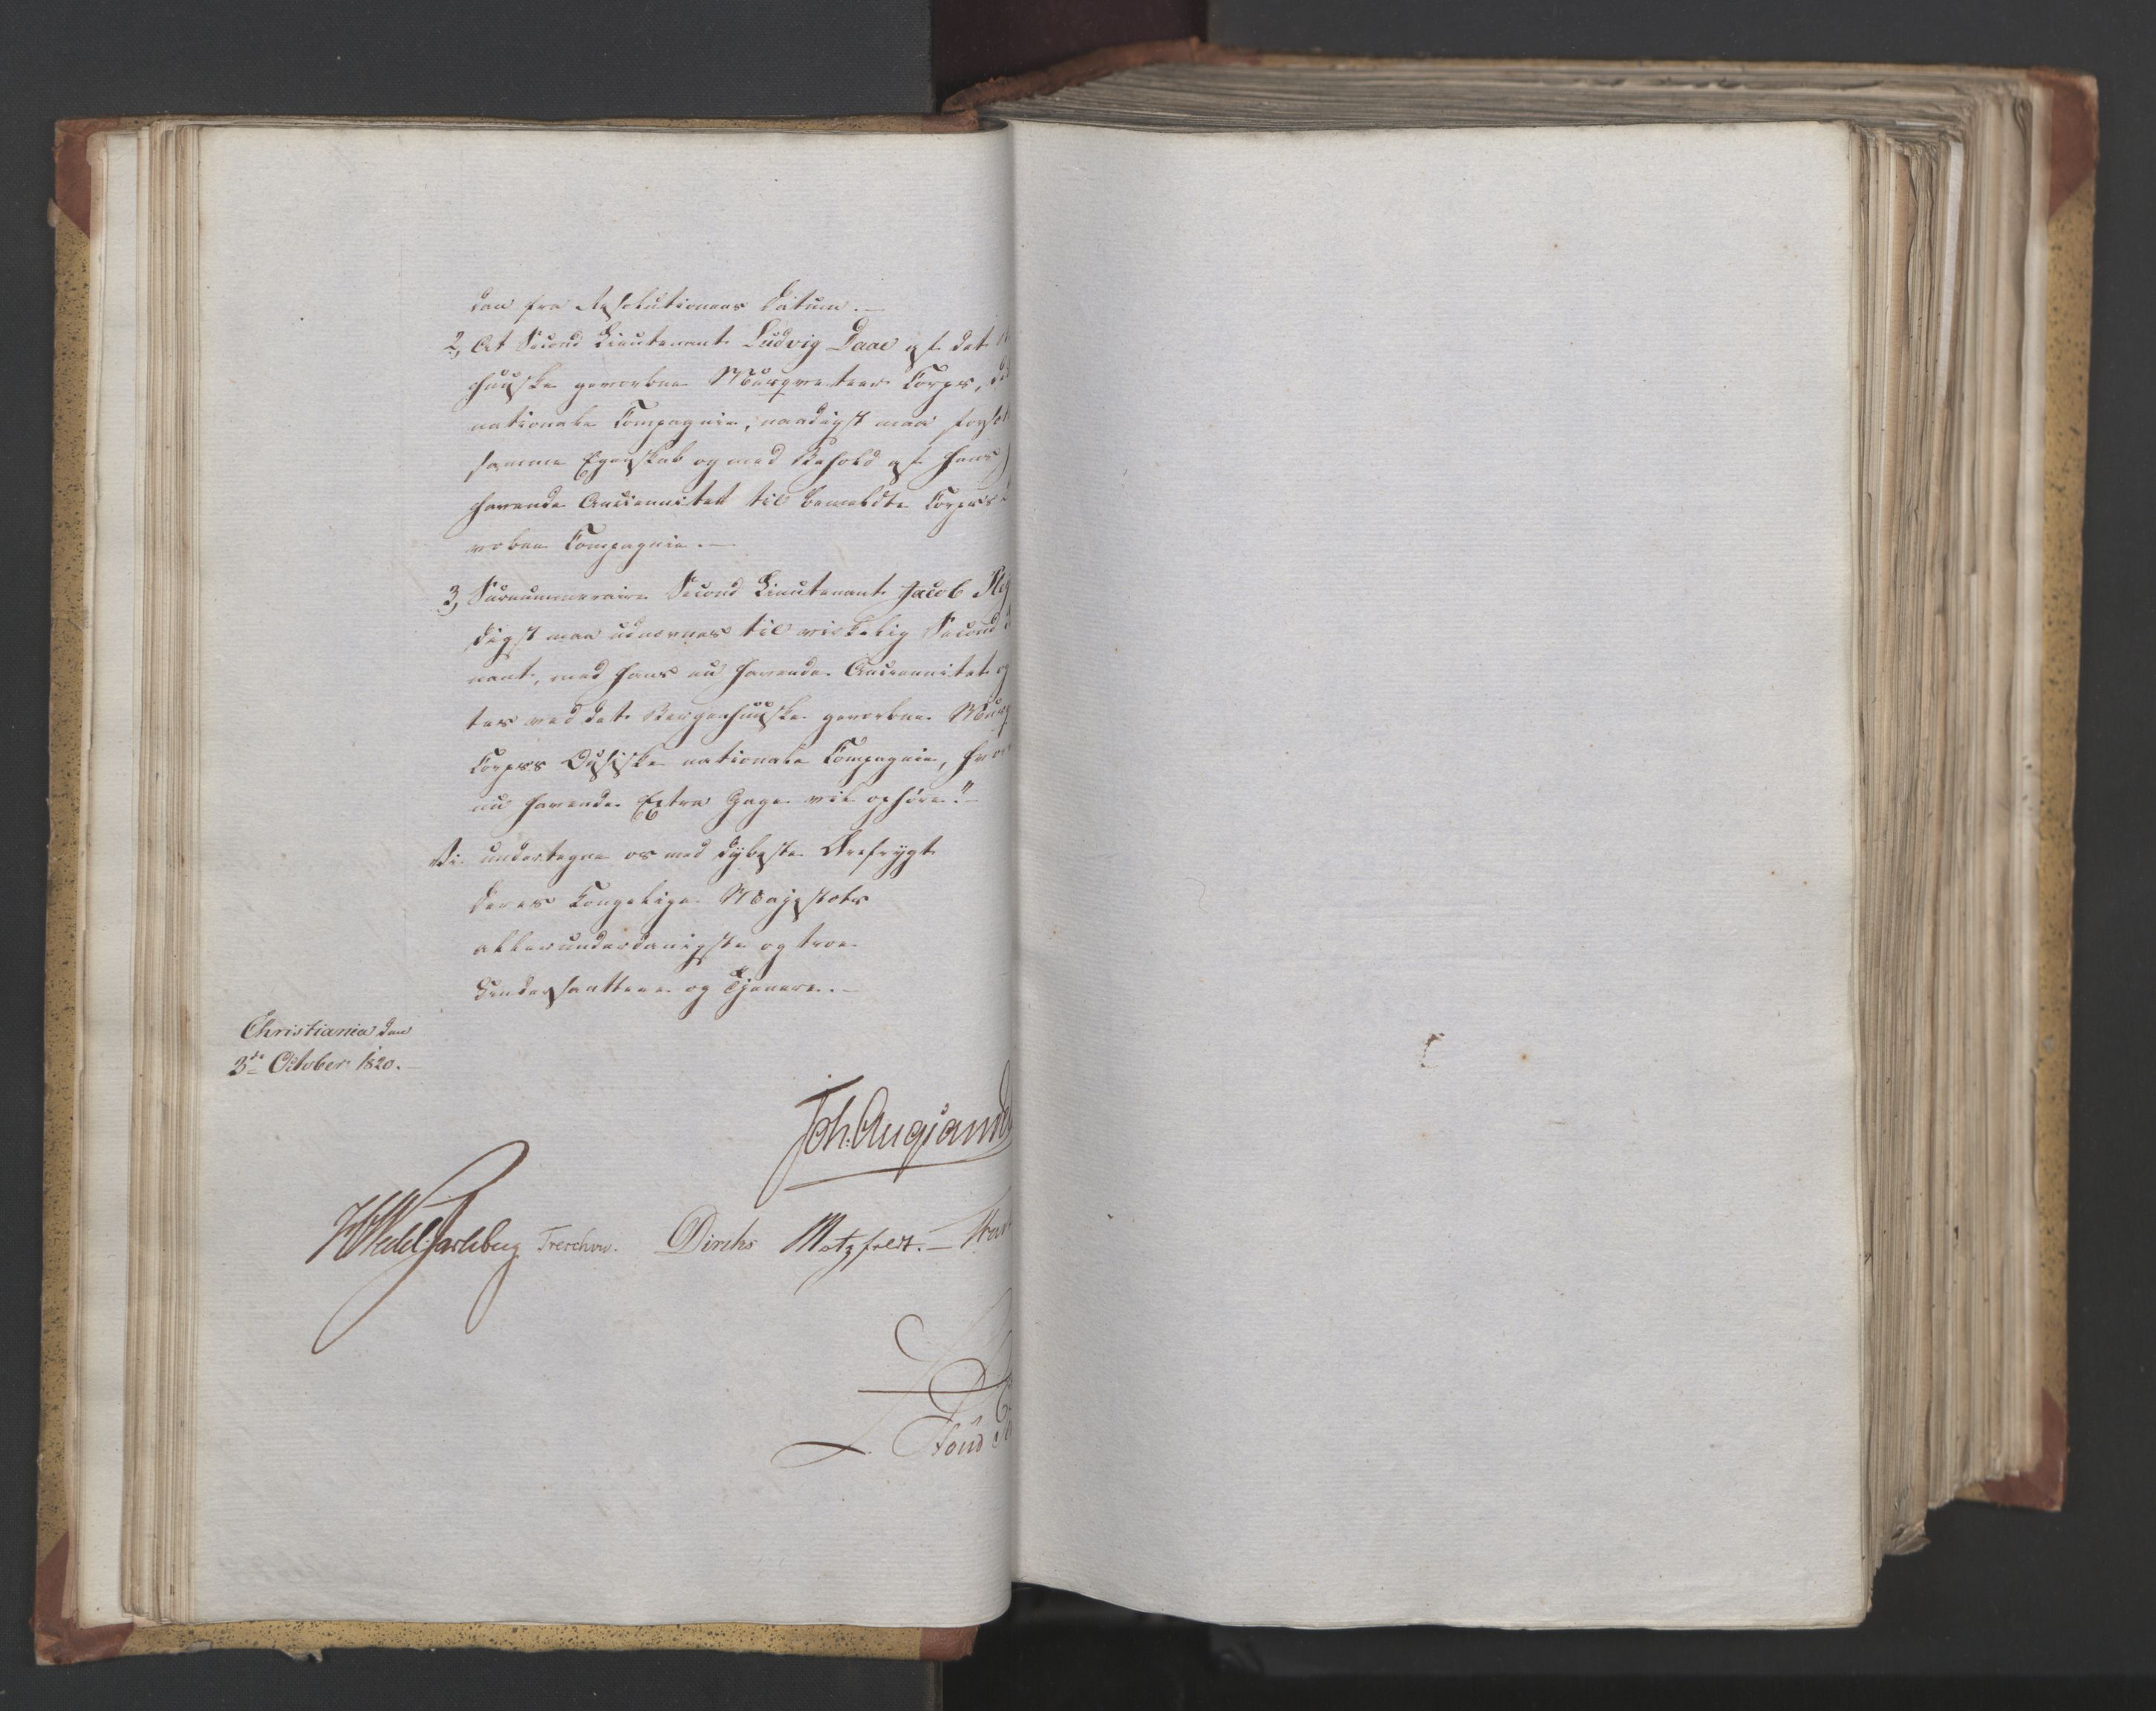 den fra Resolutionens Datum.—
2, At Second Lieutenant Ludvig Daae af det
huuske gevorbne Musqveteer Corps,
nationale Compagnie, naadigst maa
samme Egenskab og med Behold af hans
havende Anciennitet til bemeldte Corpses
vorbne Compagnie.—
3, Surnummeraire Second Lieutenant Jacob
digst maa udnævnes til virkelig Second
nant, med hans nu havende Anciennitet og
ter ved det Bergenhuuske gevorbne
Corpses nationale Compagnie,
nu havende Extra Gage vil ophøre."—
Vi undertegne os med dybeste Ærefrygt
Deres Kongelige Majestæts
allerunderdanigste og troe
Undersaatter og Tjenere.—
Christiania den
3die October 1820.—
Joh. Aug. Sandels
HWedel Jarlsberg Treschow. Diriks Motzfeldt.—